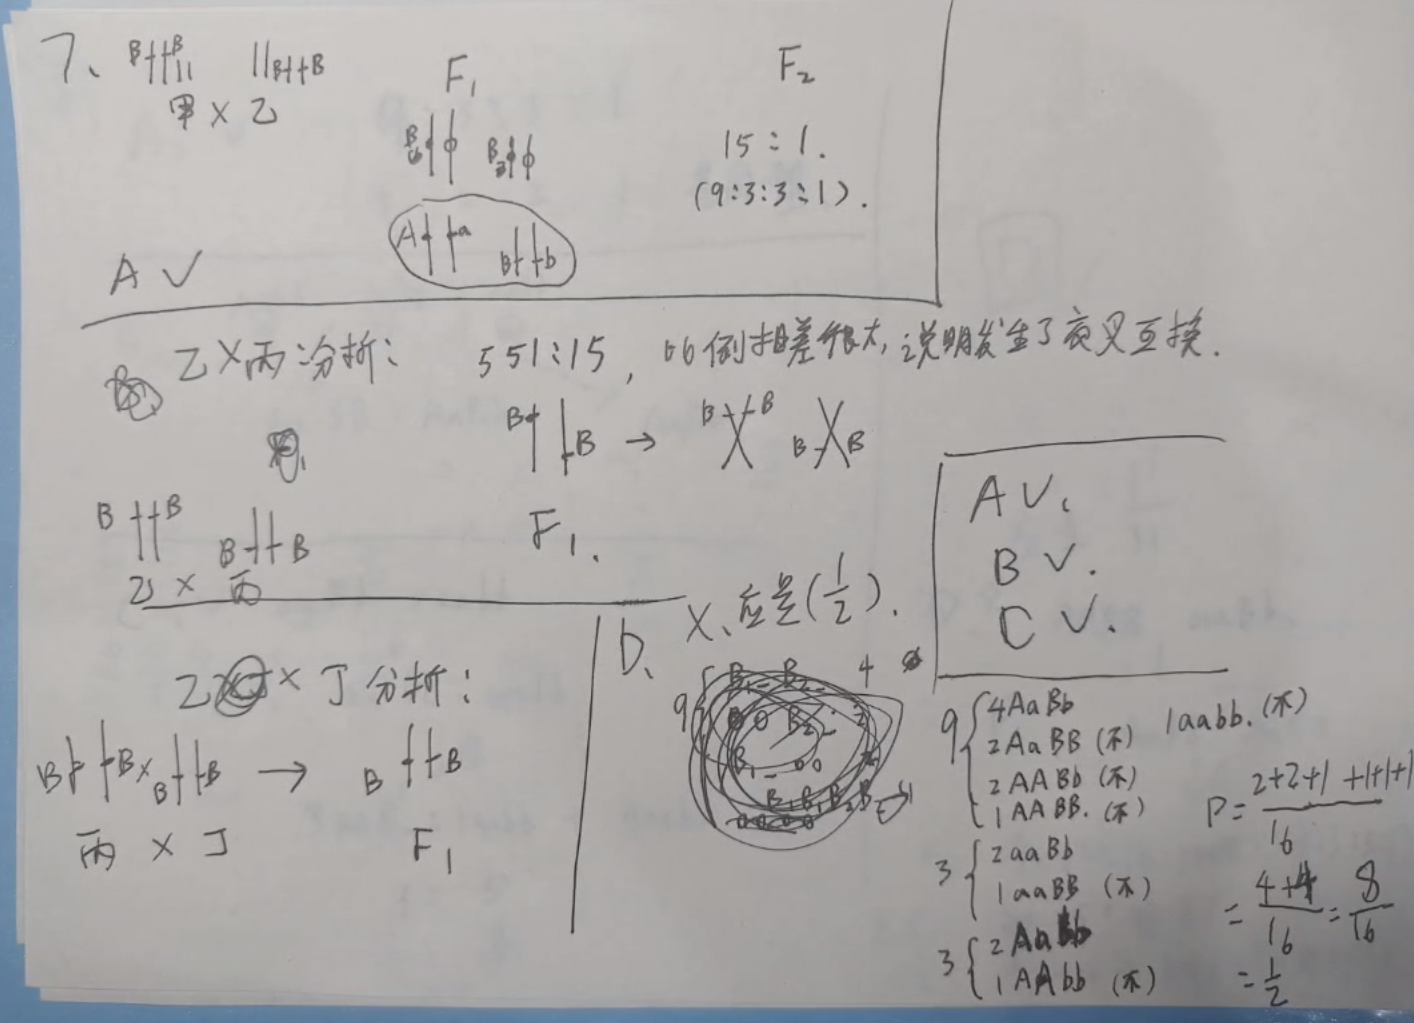 7、
B B B B
甲 × 乙
F₁
F₂
15:1.
(9:3:3:1).
A a B b
A ✓
乙×丙分析: 551:15, 比例相差很大,说明发生了交叉互换.
B B → B B B B
B B B B
F₁.
乙 × 丙
A ✓.
B ✓.
C ✓.
D、 ×、应是(1/2).
乙 × 丁分析:
B B × B B → B B
丙 × 丁
F₁
9 { 4AaBb
2AaBB (不)
2AABb (不)
1AABB. (不)
1aabb. (不)
3 { 2aaBb
1aaBB (不)
3 { 2Aabb
1AAbb (不)
P= 2+2+1+1+1+1/16
= 4+4/16 = 8/16
= 1/2